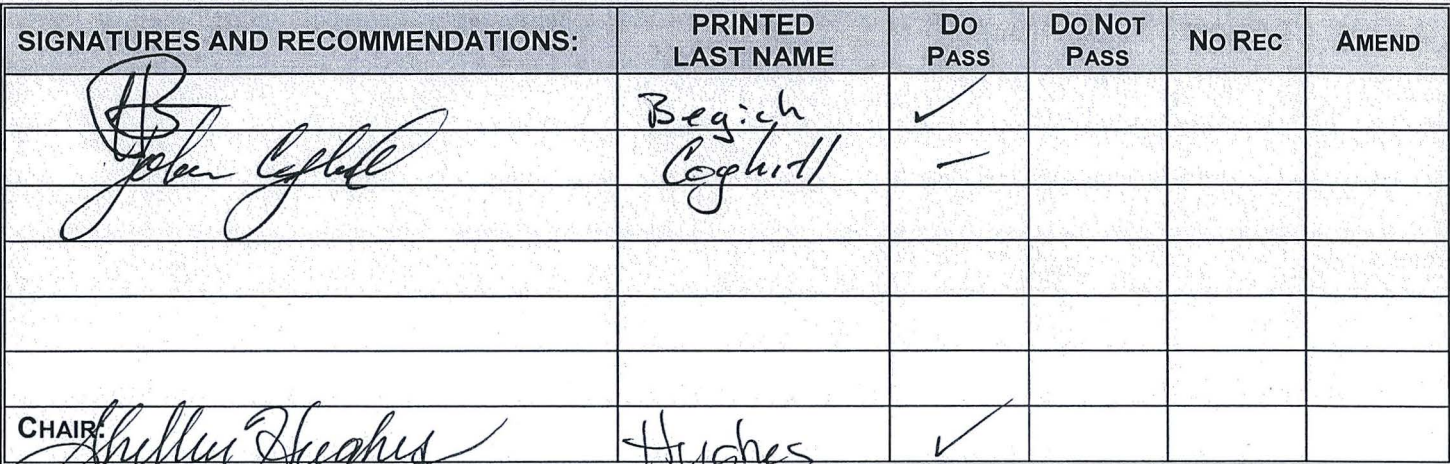 SIGNATURES AND RECOMMENDATIONS: PRINTED LAST NAME DO PASS DO NOT PASS NO REC AMEND
Begich ✓
John Coghill Coghill –
CHAIR: Shelley Hughes Hughes ✓